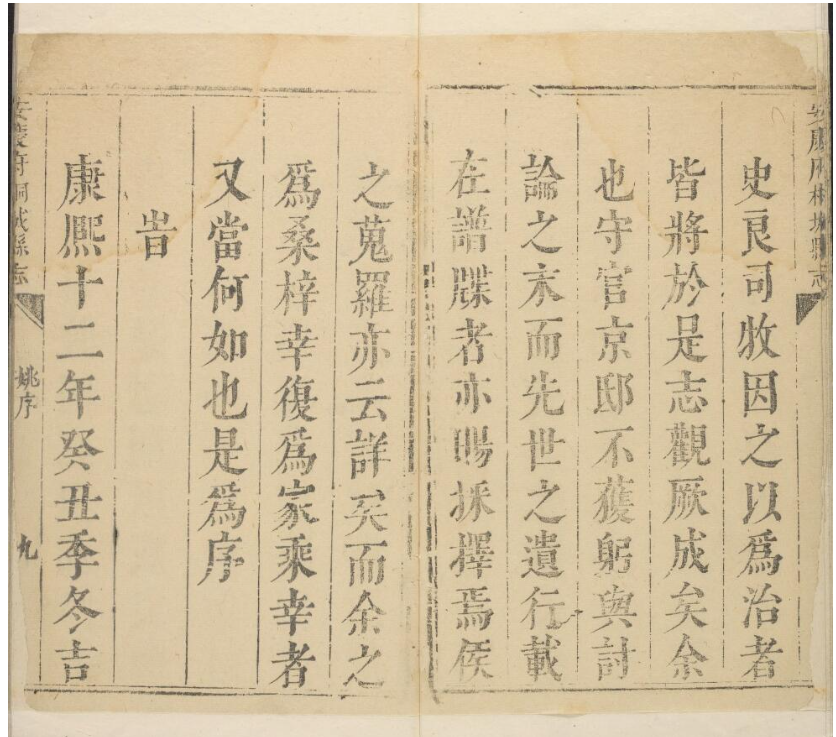 史良司牧因之以爲治者
皆將於是志觀厥成矣余
也守官京邸不獲躬與討
論之末而先世之遺行載
在譜牒者亦賜採擇焉侯
之蒐羅亦云詳矣而余之
爲桑梓幸復爲家乘幸者
又當何如也是爲序
旹
康熙十二年癸丑季冬吉
安慶府桐城縣志
姚序
九